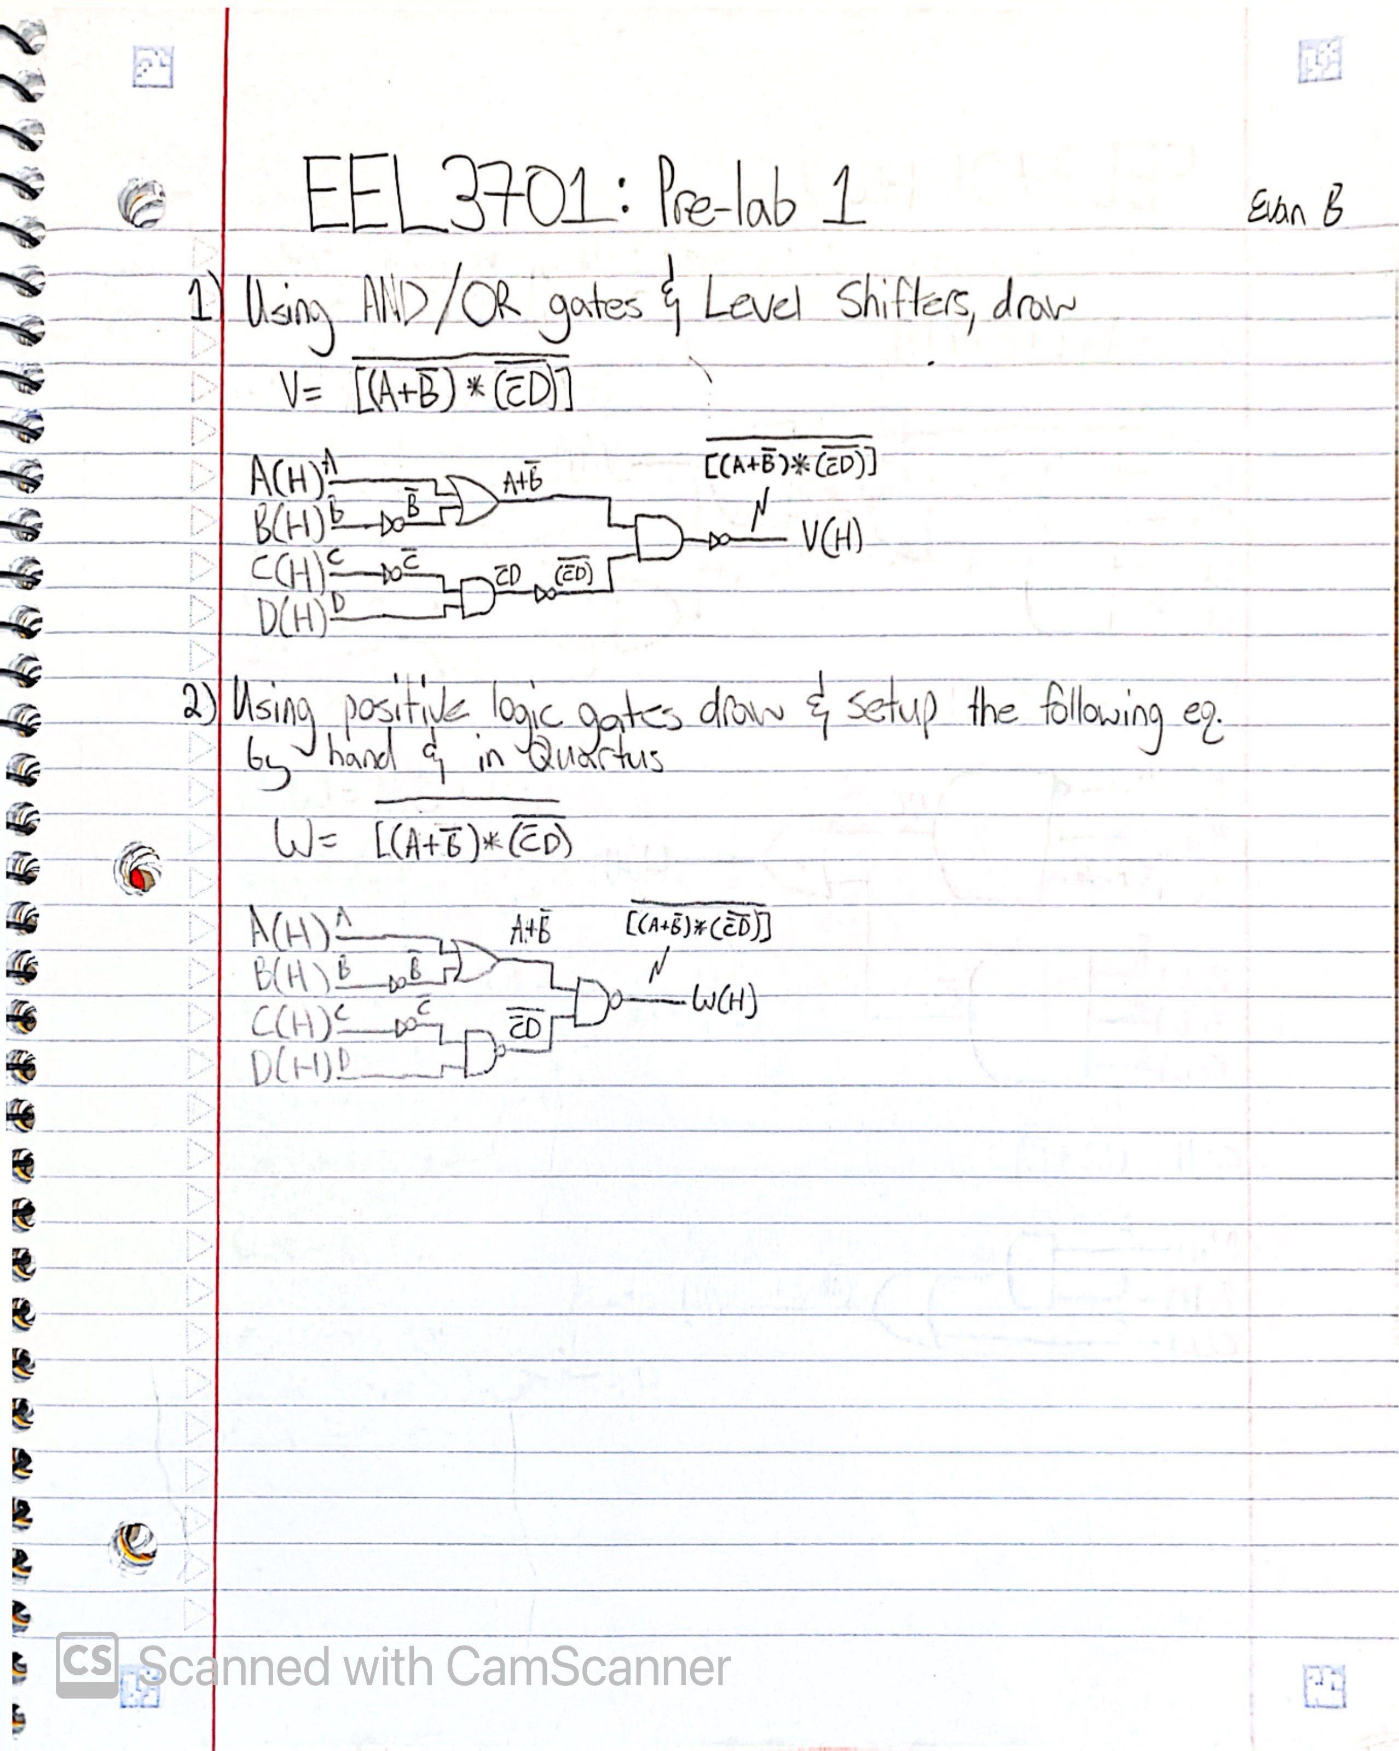 EEL 3701: Pre-lab 1
Evan B
1) Using AND/OR gates & Level Shifters, draw
V= \overline{[(A+B̅) * \overline{(C̅D)}]}
\overline{[(A+B̅)*\overline{(C̅D)}]}
A(H) A
A+B̅
B(H) B B̅
V(H)
C(H) C C̅
C̅D \overline{(C̅D)}
D(H) D
2) Using positive logic gates draw & setup the following eq.
by hand & in Quartus
W= \overline{[(A+B̅)*\overline{(C̅D)}}
A(H) A A+B̅ \overline{[(A+B̅)*\overline{(C̅D)}]}
B(H) B B̅
W(H)
C(H) C C̅ \overline{C̅D}
D(H) D
CS Scanned with CamScanner